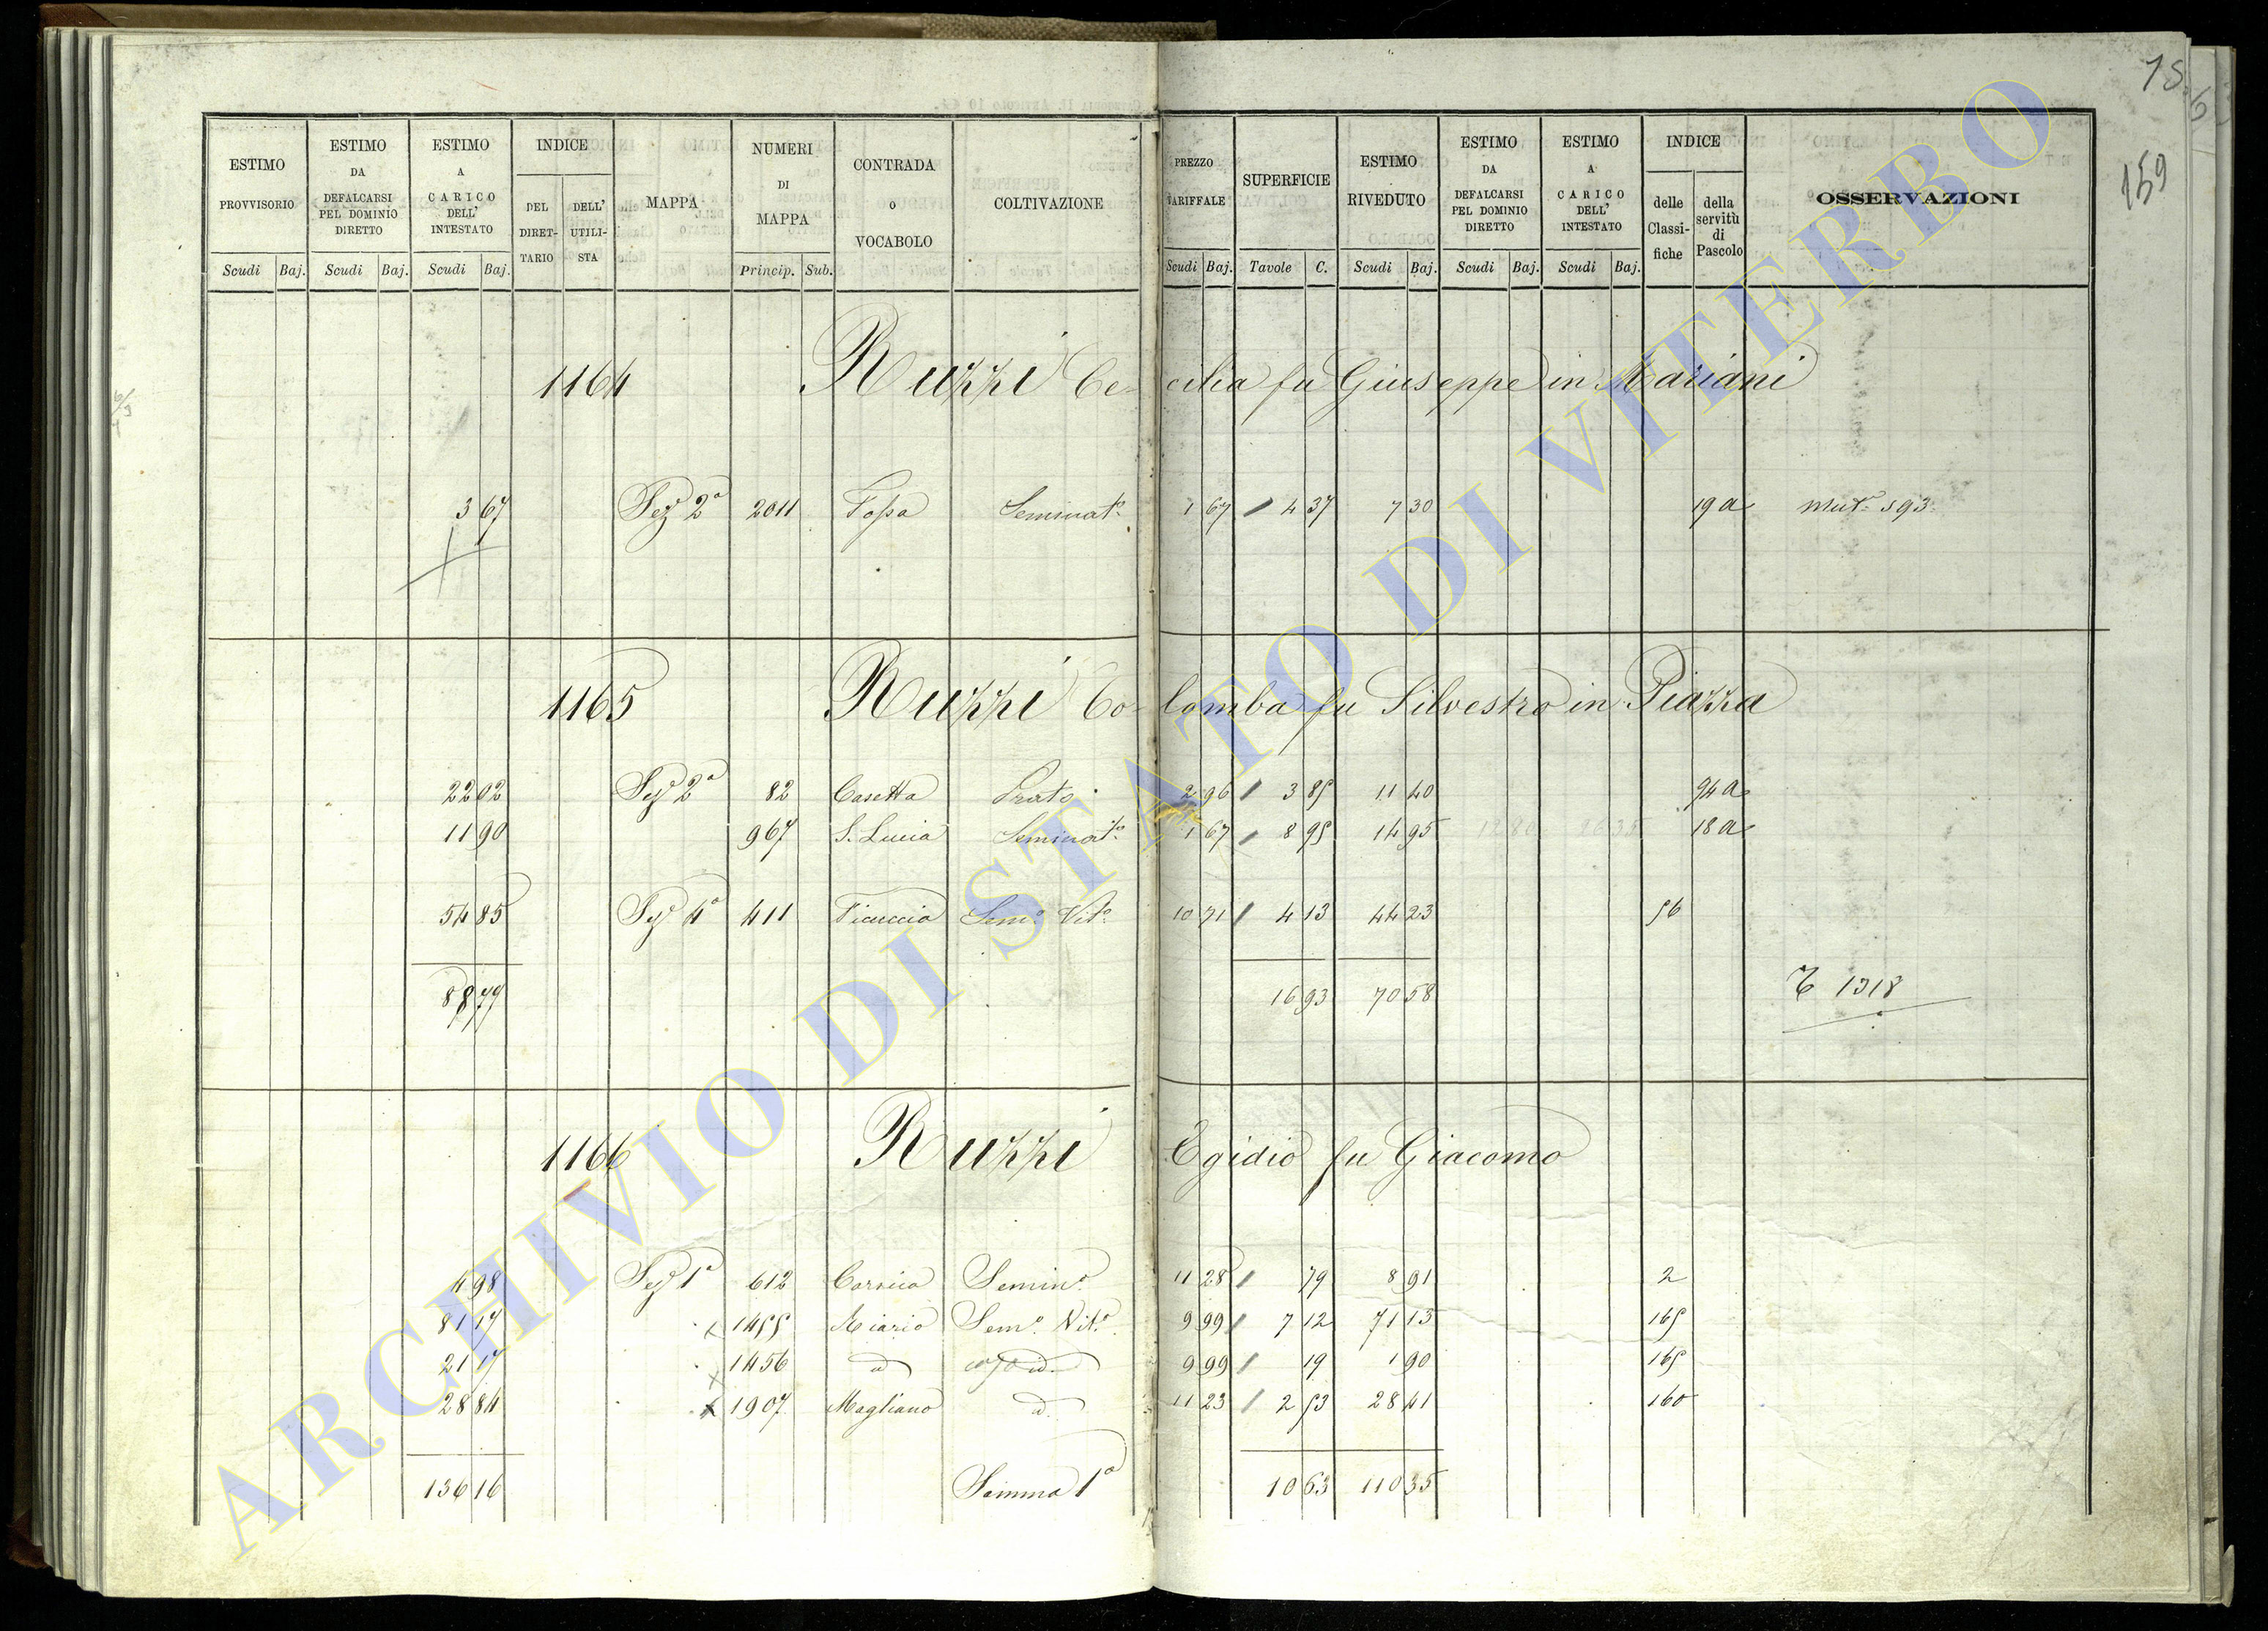 159
ESTIMO PROVVISORIO Scudi Baj.
ESTIMO DA DEFALCARSI PEL DOMINIO DIRETTO Scudi Baj.
ESTIMO A CARICO DELL' INTESTATO Scudi Baj.
INDICE DEL DIRETTARIO DELL' UTILISTA
MAPPA
NUMERI DI MAPPA Princip. Sub.
CONTRADA O VOCABOLO
COLTIVAZIONE
PREZZO TARIFFALE Scudi Baj.
SUPERFICIE Tavole C.
ESTIMO RIVEDUTO Scudi Baj.
ESTIMO DA DEFALCARSI PEL DOMINIO DIRETTO Scudi Baj.
ESTIMO A CARICO DELL' INTESTATO Scudi Baj.
INDICE delle Classifiche della servitù di Pascolo
OSSERVAZIONI
1164 Ruzzi Cecilia fu Giuseppe in Mariani
3 67 Sez.e 2a 2011 Fossa Seminat.o 1 67 4 37 7 30 19a Mut.e 593
1165 Ruzzi Colomba fu Silvestro in Piazza
22 02 Sez.e 2a 82 Casetta Prato 2 96 3 85 11 40 94a
11 90 967 S. Lucia Seminat.o 1 67 8 95 14 95 18a
54 85 Sez.e 4a 411 Ficuccia Sem.o Vit.o 10 71 4 13 44 23 56
88 77 16 93 70 58 1318
1166 Ruzzi Egidio fu Giacomo
4 98 Sez.e 1a 612 Carnica Semin.o 11 28 79 8 91 2
81 17 1455 Miario Sem.o Vit.o 9 99 7 12 71 13 165
21 17 1456 id id. 9 99 19 1 90 165
28 84 1907 Magliano id. 11 23 2 53 28 41 160
136 16 Somma 1a 10 63 110 35
ARCHIVIO DI STATO DI VITERBO